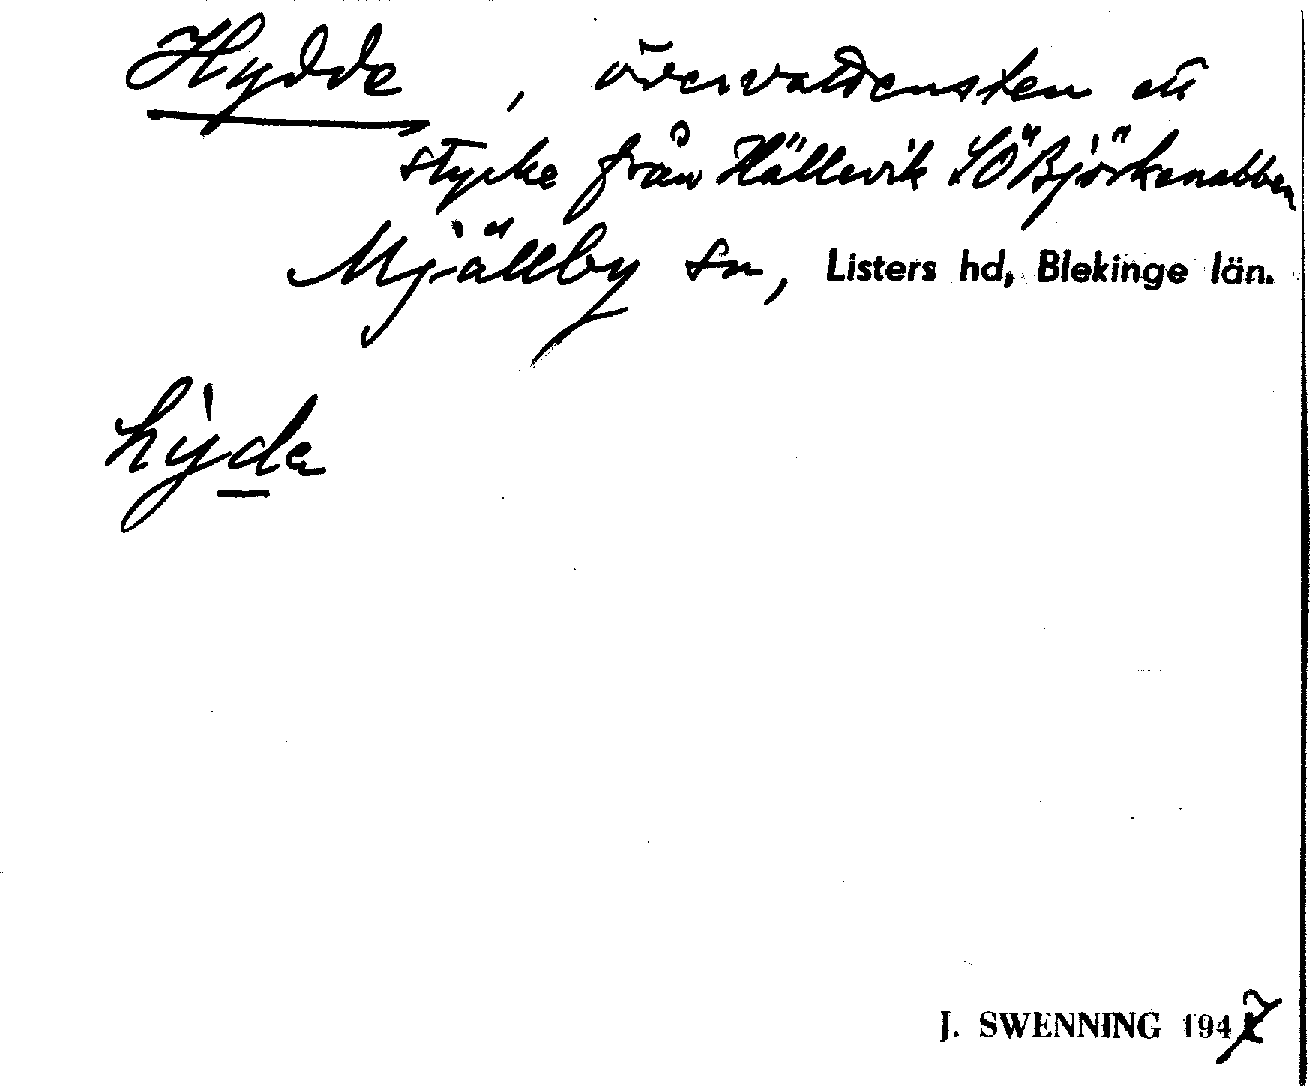 Hydde, övervattensten ett
stycke från Hällevik SÖ Björkenabben
Mjällby sn, Listers hd, Blekinge län.
hỳde
J. SWENNING 1947